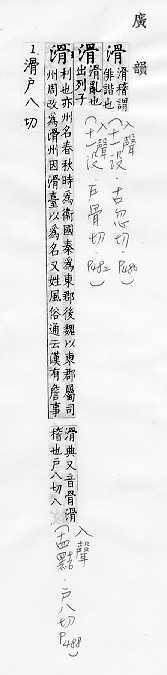 廣韻
滑 滑稽謂俳諧也 (入聲十一沒．古忽切．P486)
滑 滑亂也出列子 (入聲十一沒．戶骨切．P482)
滑 利也亦州名春秋時為衛國秦為東郡後魏以東郡屬司州周改為滑州因滑臺以為名又姓風俗通云漢有詹事滑典又音骨滑稽也戶八切八 (入聲十四黠．戶八切 P488)
1.滑戶八切